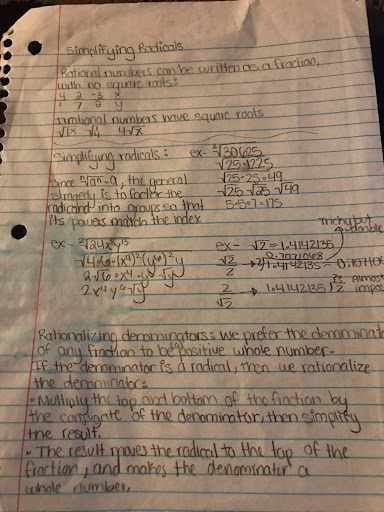 Simplifying Radicals
Rational numbers can be written as a fraction,
with no square roots:
4/1 2/7 -3/2 x/y
Irrational numbers have square roots
√18 √4 4√x
Simplifying radicals: ex- ²√30625
√25·1225
√25·25·49
Since ⁿ√aⁿ=a, the general
strategy is to factor the
√25·√25·√49
radicand into groups so that
5·5·7=175
its powers match the index
Tricky but doable
ex- ²√24x⁸y¹³
ex- √2=1.4142135
√4·6·(x⁴)²(y⁶)²y
√2/2 → 2⟌1.4142135 =
0.7071068
2·√6·x⁴·y⁶·√y
2x⁴y⁶√
2/√2 → 1.4142135⟌2
Almost
Rationalizing denominators: we prefer the denominato
of any fraction to be positive whole number-
If the denominator is a radical, then we rationalize
the denominator:
• Multiply the top and bottom of the fraction by
the conjugate of the denominator, then simplify
the result.
• The result moves the radical to the top of the
fraction, and makes the denominator a
whole number.